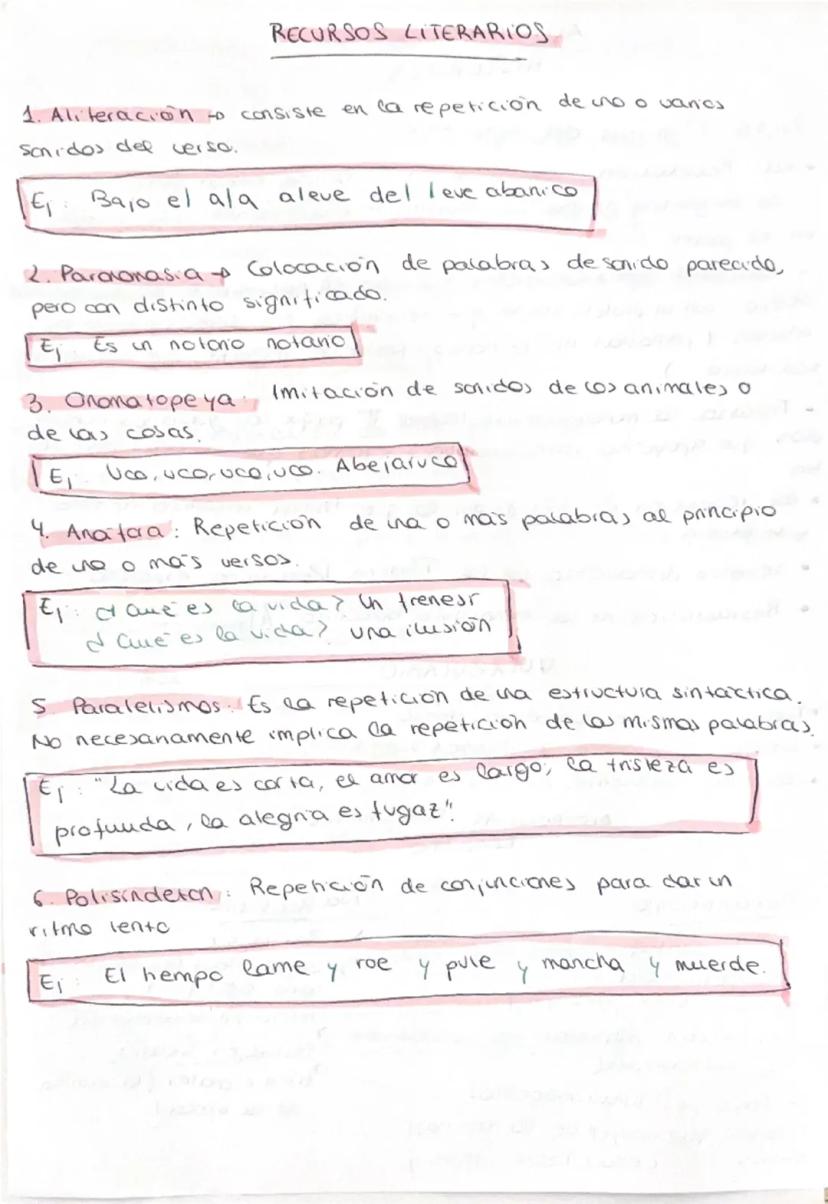 RECURSOS LITERARIOS
1. Aliteración → consiste en la repetición de uno o varios
sonidos del verso.
Ej: Bajo el ala aleve del leve abanico
2. Paranonasia → Colocación de palabras de sonido parecido,
pero con distinto significado.
Ej Es un notorio notario
3. Onomatopeya: Imitación de sonidos de los animales o
de las cosas.
Ej Uco, uco, uco, uco. Abejaruco
4. Anáfora: Repetición de una o mas palabras al principio
de uno o más versos.
Ej: ¿Qué es la vida? Un frenesí
¿Qué es la vida? una ilusión
5. Paralelismos: Es la repetición de una estructura sintáctica.
No necesariamente implica la repetición de las mismas palabras.
Ej: "La vida es corta, el amor es largo; la tristeza es
profunda, la alegría es fugaz".
6. Polisíndeton: Repetición de conjunciones para dar un
ritmo lento
Ej: El tiempo lame y roe y pule y mancha y muerde.